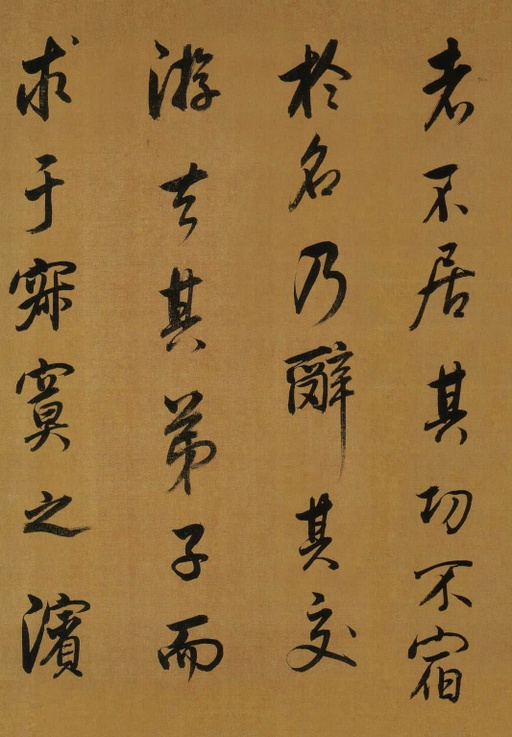 老不居其功不宿
於名乃辭其交
游去其弟子而
求于寂寞之濱